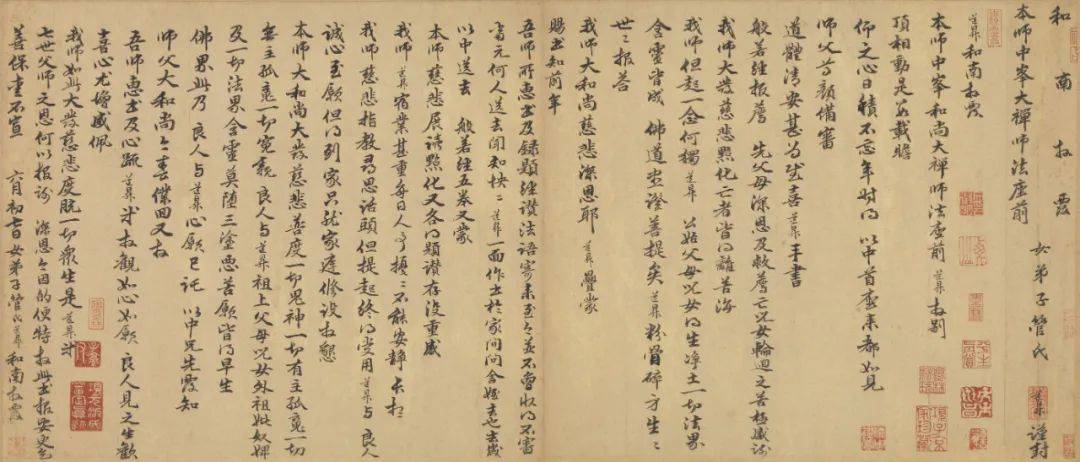 和南拜覆
本師中峯大禅師法座前 女弟子管氏道昇謹封
道昇和南拜覆
本師中峯和尚大禅師法座前 道昇拜别
頂相動是数載瞻
仰之心日積不忘年時得 以中首座来都如見
師父尊顔備審
道體清安甚為慰喜 道昇手書
般若經報薦 先父母深恩及救薦亡児女輪迴之苦極感謝
我師大和尚大發慈悲點化亡者皆得離苦海
我師但起一念何獨道昇 公姑父母児女得生净土一切法界
含靈皆成 佛道並證菩提矣 道昇粉骨碎身生々
世々報答
我師大和尚慈悲深恩耶 道昇疊蒙
賜書知前年
吾師所惠書及録題經讃法語寄来至今並不曽收得不審
當元何人送去聞知怏々道昇一面作書於家間問舍姪去也去歳
以中送去 般若經五卷又蒙
本師慈悲展誦點化又各得題讃存没重感
我師 道昇宿業甚重每日人事擾々不能安静長想
我師慈悲指教尋思話頭但提起終得受用道昇與 良人
誠心至願但得到家只就家庭修設拜懇
本師大和尚大發慈悲普度一切鬼神一切有主孤魂一切
無主孤魂一切冤親 良人與道昇祖上父母児女外祖妣奴婢
及一切法界含靈莫墮三塗惡苦願皆得早生
佛界此乃 良人與道昇心願已託 以中兄先覆知
師父大和尚今春僕回又拜
吾師惠書及心疏道昇拜觀如心如願 良人見之生歡
喜心尤增感佩
我師如此大發慈悲度脱一切衆生是道昇
七世父師之恩何以報謝 深恩今因的便特拜此書拒安更乞
善保重不宣 六月初七日女弟子管氏道昇和南拜覆